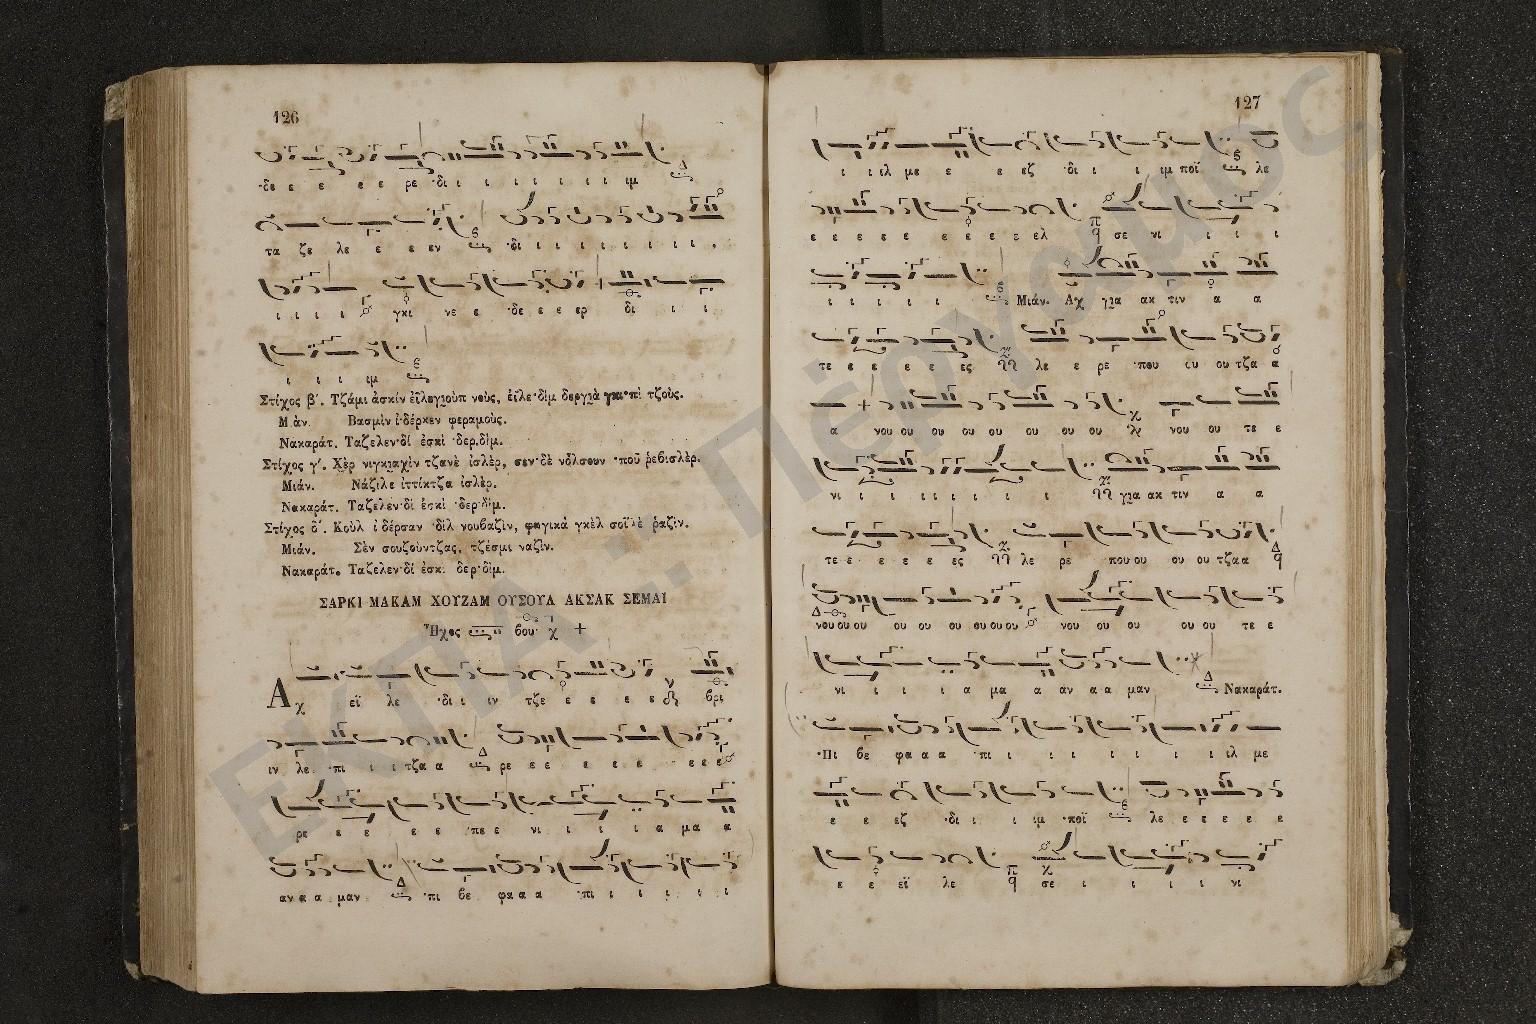 126
δε ε ε ε ε ρε ·δι ι ι ι ι ι ι ι ιμ
τα ζε λε ε ε εν ·δι ι ι ι ι ι ι ι ι
ι ι ι ι γκι νε ε ·δε ε ε ερ δι ι ι
ι ι ι ιμ
Στίχος β΄. Τζάμι ἀσκίν ἐϊλεγιοὺπ νοὺς, ἐϊλε·δὶμ δεργιὰ γκι·πὶ τζοὺς.
Μιάν. Βασμὶν ἰ·δέρκεν φεραμοὺς.
Νακαράτ. Ταζελεν·δί ἐσκὶ ·δερ.δὶμ.
Στίχος γ΄. Χὲρ νιγκιαχὶν τζανὲ ἰσλὲρ, σεν·δὲ νὄλσουν ·ποῦ ῥεβισλὲρ.
Μιάν. Νάζιλε ἰττίκτζα ἰσλὲρ.
Νακαράτ. Ταζελεν·δί ἐσκὶ ·δερ·δὶμ.
Στίχος δ΄. Κοὺλ ἰ·δέρσαν ·δὶλ νουβαζὶν, φωγικὰ γκὲλ ῥαζὶν.
Μιάν. Σὲν σουζούντζας, τζέσμι ναζὶν.
Νακαράτ. Ταζελεν·δί ἐσκ. δερ·δὶμ.
ΣΑΡΚΙ ΜΑΚΑΜ ΧΟΥΖΑΜ ΟΥΣΟΥΛ ΑΚΣΑΚ ΣΕΜΑΪ
Ἦχος βου χ
Α χ εϊ λε ·δι ι ιν τζε ε ε ε ε ε βρι
ιν λε ·πι ι ι τζα α ρε ε ε ε ε ε ε ε ε
ρε ε ε ε ε ·πε ε νι ι ι ι α μα α
αν α α μαν ·πι βε φα α α ·πι ι ι ι ι ι
127
ι ι ιλ με ε ε εζ ·δι ι ι ιμ ποϊ λε
ε ε ε ε ε ε ε ε ε ελ σε νι ι ι ι
ι ι ι ι ι Μιάν. Αχ για ακ τιν α α
τε ε ε ε ε ε ες λε ε ρε ·που ου ου τζα α
α νου ου ου ου ου ου ου ου νου ου τε ε
νι ι ι ι ι ι ι ι ι για ακ τιν α α
τε ε ε ε ε ε ες λε ρε που ου ου ου τζα α
νου ου ου ου ου ου ου ου ου νου ου ου ου ου τε ε
νι ι ι ι α μα α αν α α μαν Νακαράτ.
·πι βε φα α α ·πι ι ι ι ι ι ι ι ιλ με
ε ε εζ ·δι ι ι ιμ ·ποϊ λε ε ε ε ε ε
ε ε εϊ λε σε ι ι ι ι νι
ΕΚΠΑ :: Πέργαμος